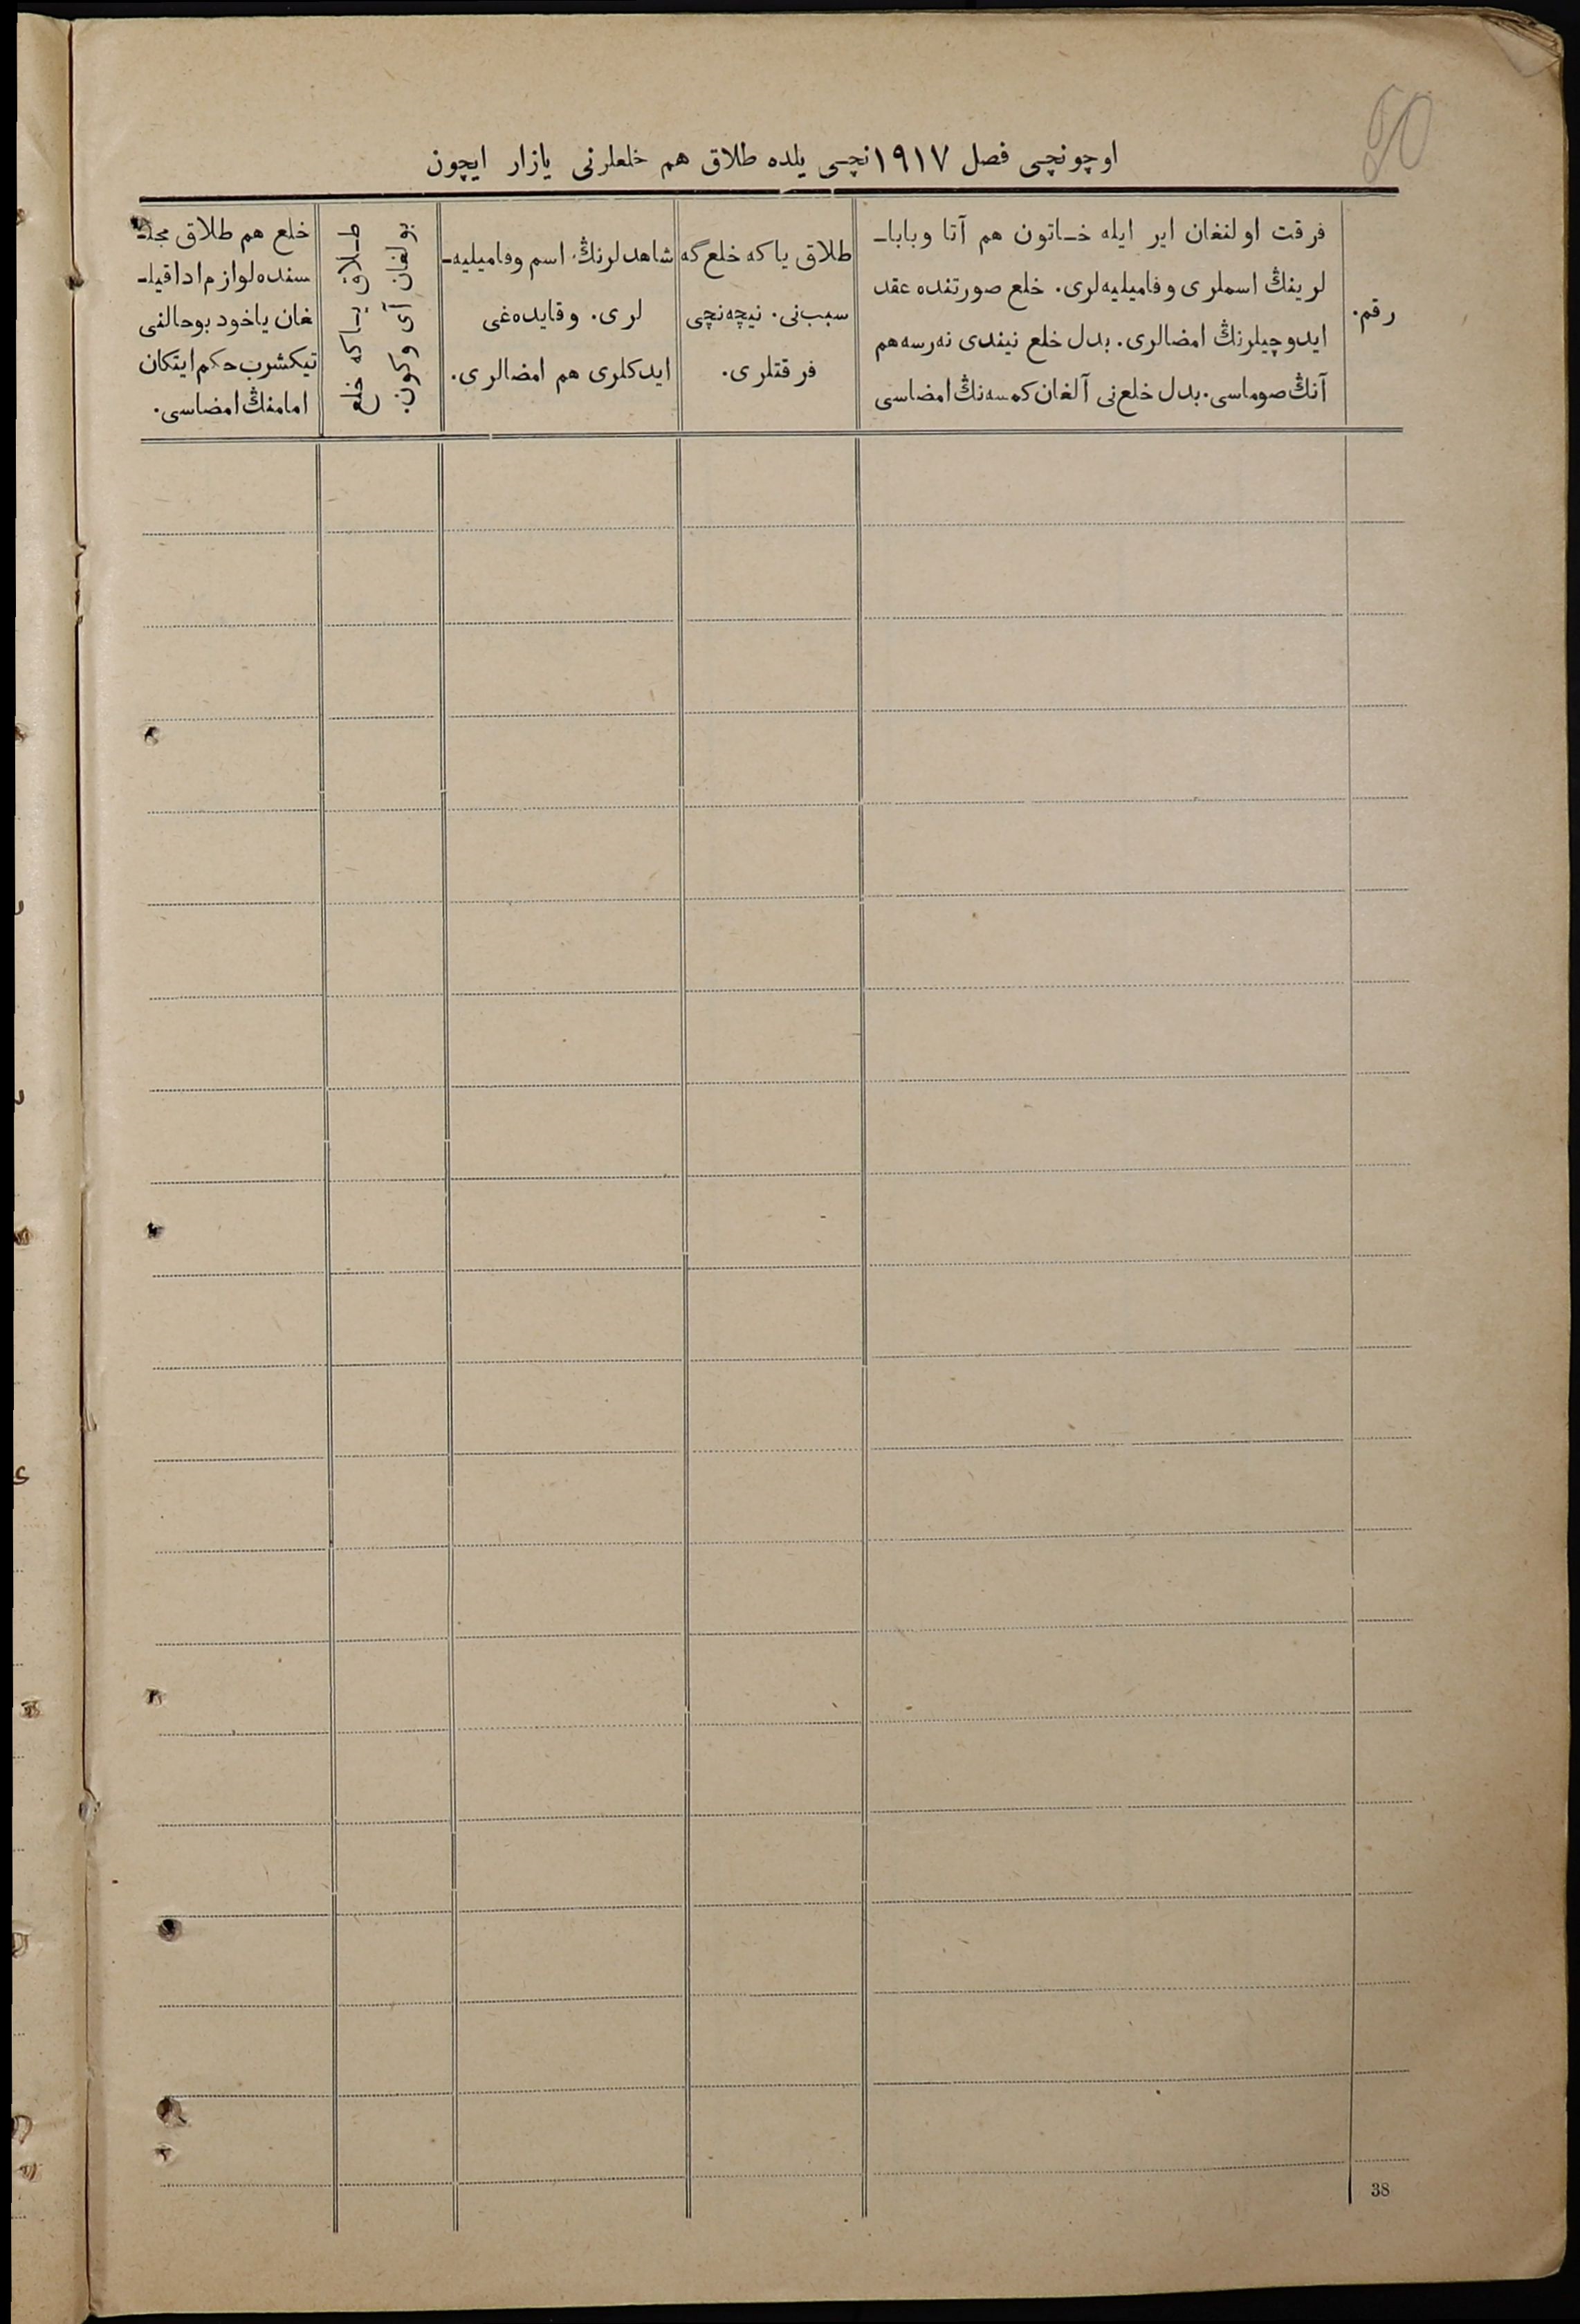 50
اوچونچی فصل ١٩١٧نچی یلده طلاق هم خلعلرنی یازار ایچون
رقم.
فرقت اولنغان ایر ایله خـاتون هم آتا وباباـ
لرینڭ اسملری وفامیلیه‌لری. خلع صورتنده عقد
ایدوچیلرنڭ امضالری. بدل خلع نیندی نه‌رسه هم
آنڭ صوماسی. بدل خلع‌نی آلغان کمسه‌نڭ امضاسی
طلاق یاکه خلع‌گه
سبب‌نی. نیچه‌نچی
فرقتلری.
شاهدلرنڭ اسم وفامیلیه‌ـ
لری. وقایده‌غی
ایدکلری هم امضالری.
طـلاق یـاکه خلع
بولغان آی وکون.
خلع هم طلاق مجلـ
سنده لوازم ادا قیلـ
غان یاخود بوحالنی
تیکشرب حکم ایتکان
امامنڭ امضاسی.
38